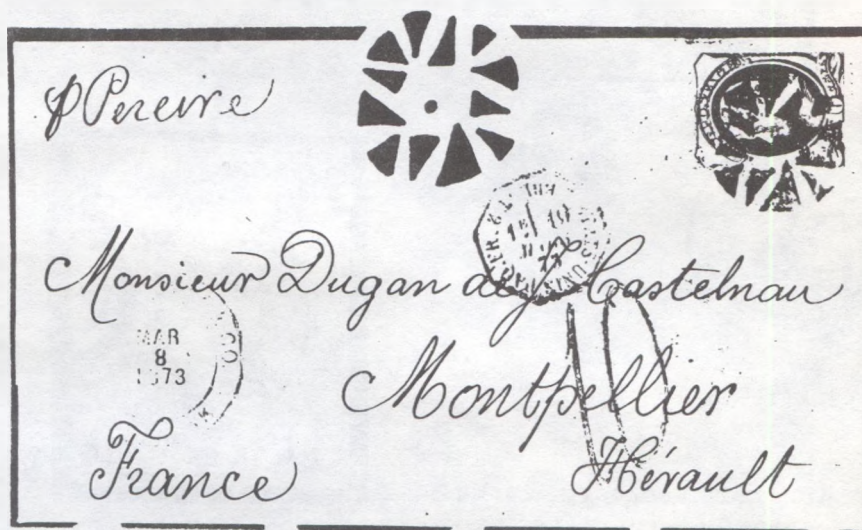 p Pereire
Monsieur Dugan de Castelnau
MAR
8
1873
Montpellier
10
France
Hérault